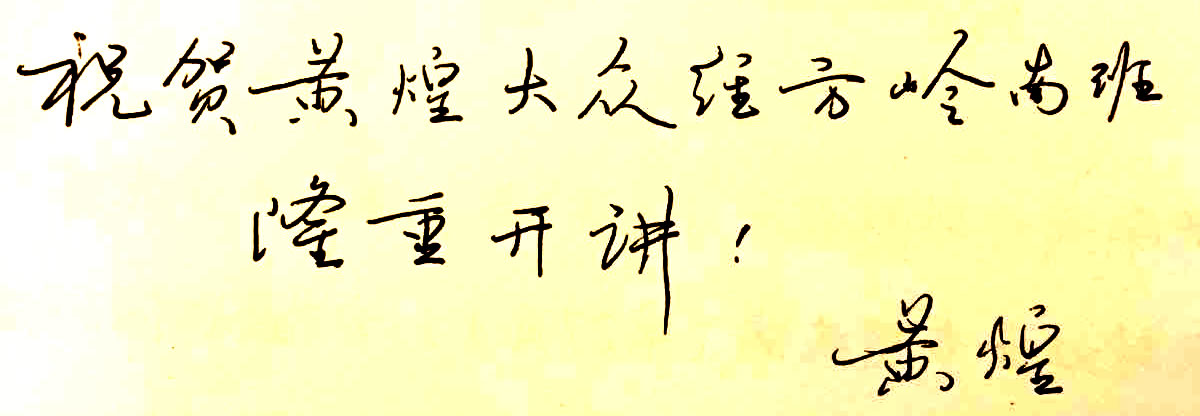 祝贺黄煌大众经方岭南班
隆重开讲！
黄煌